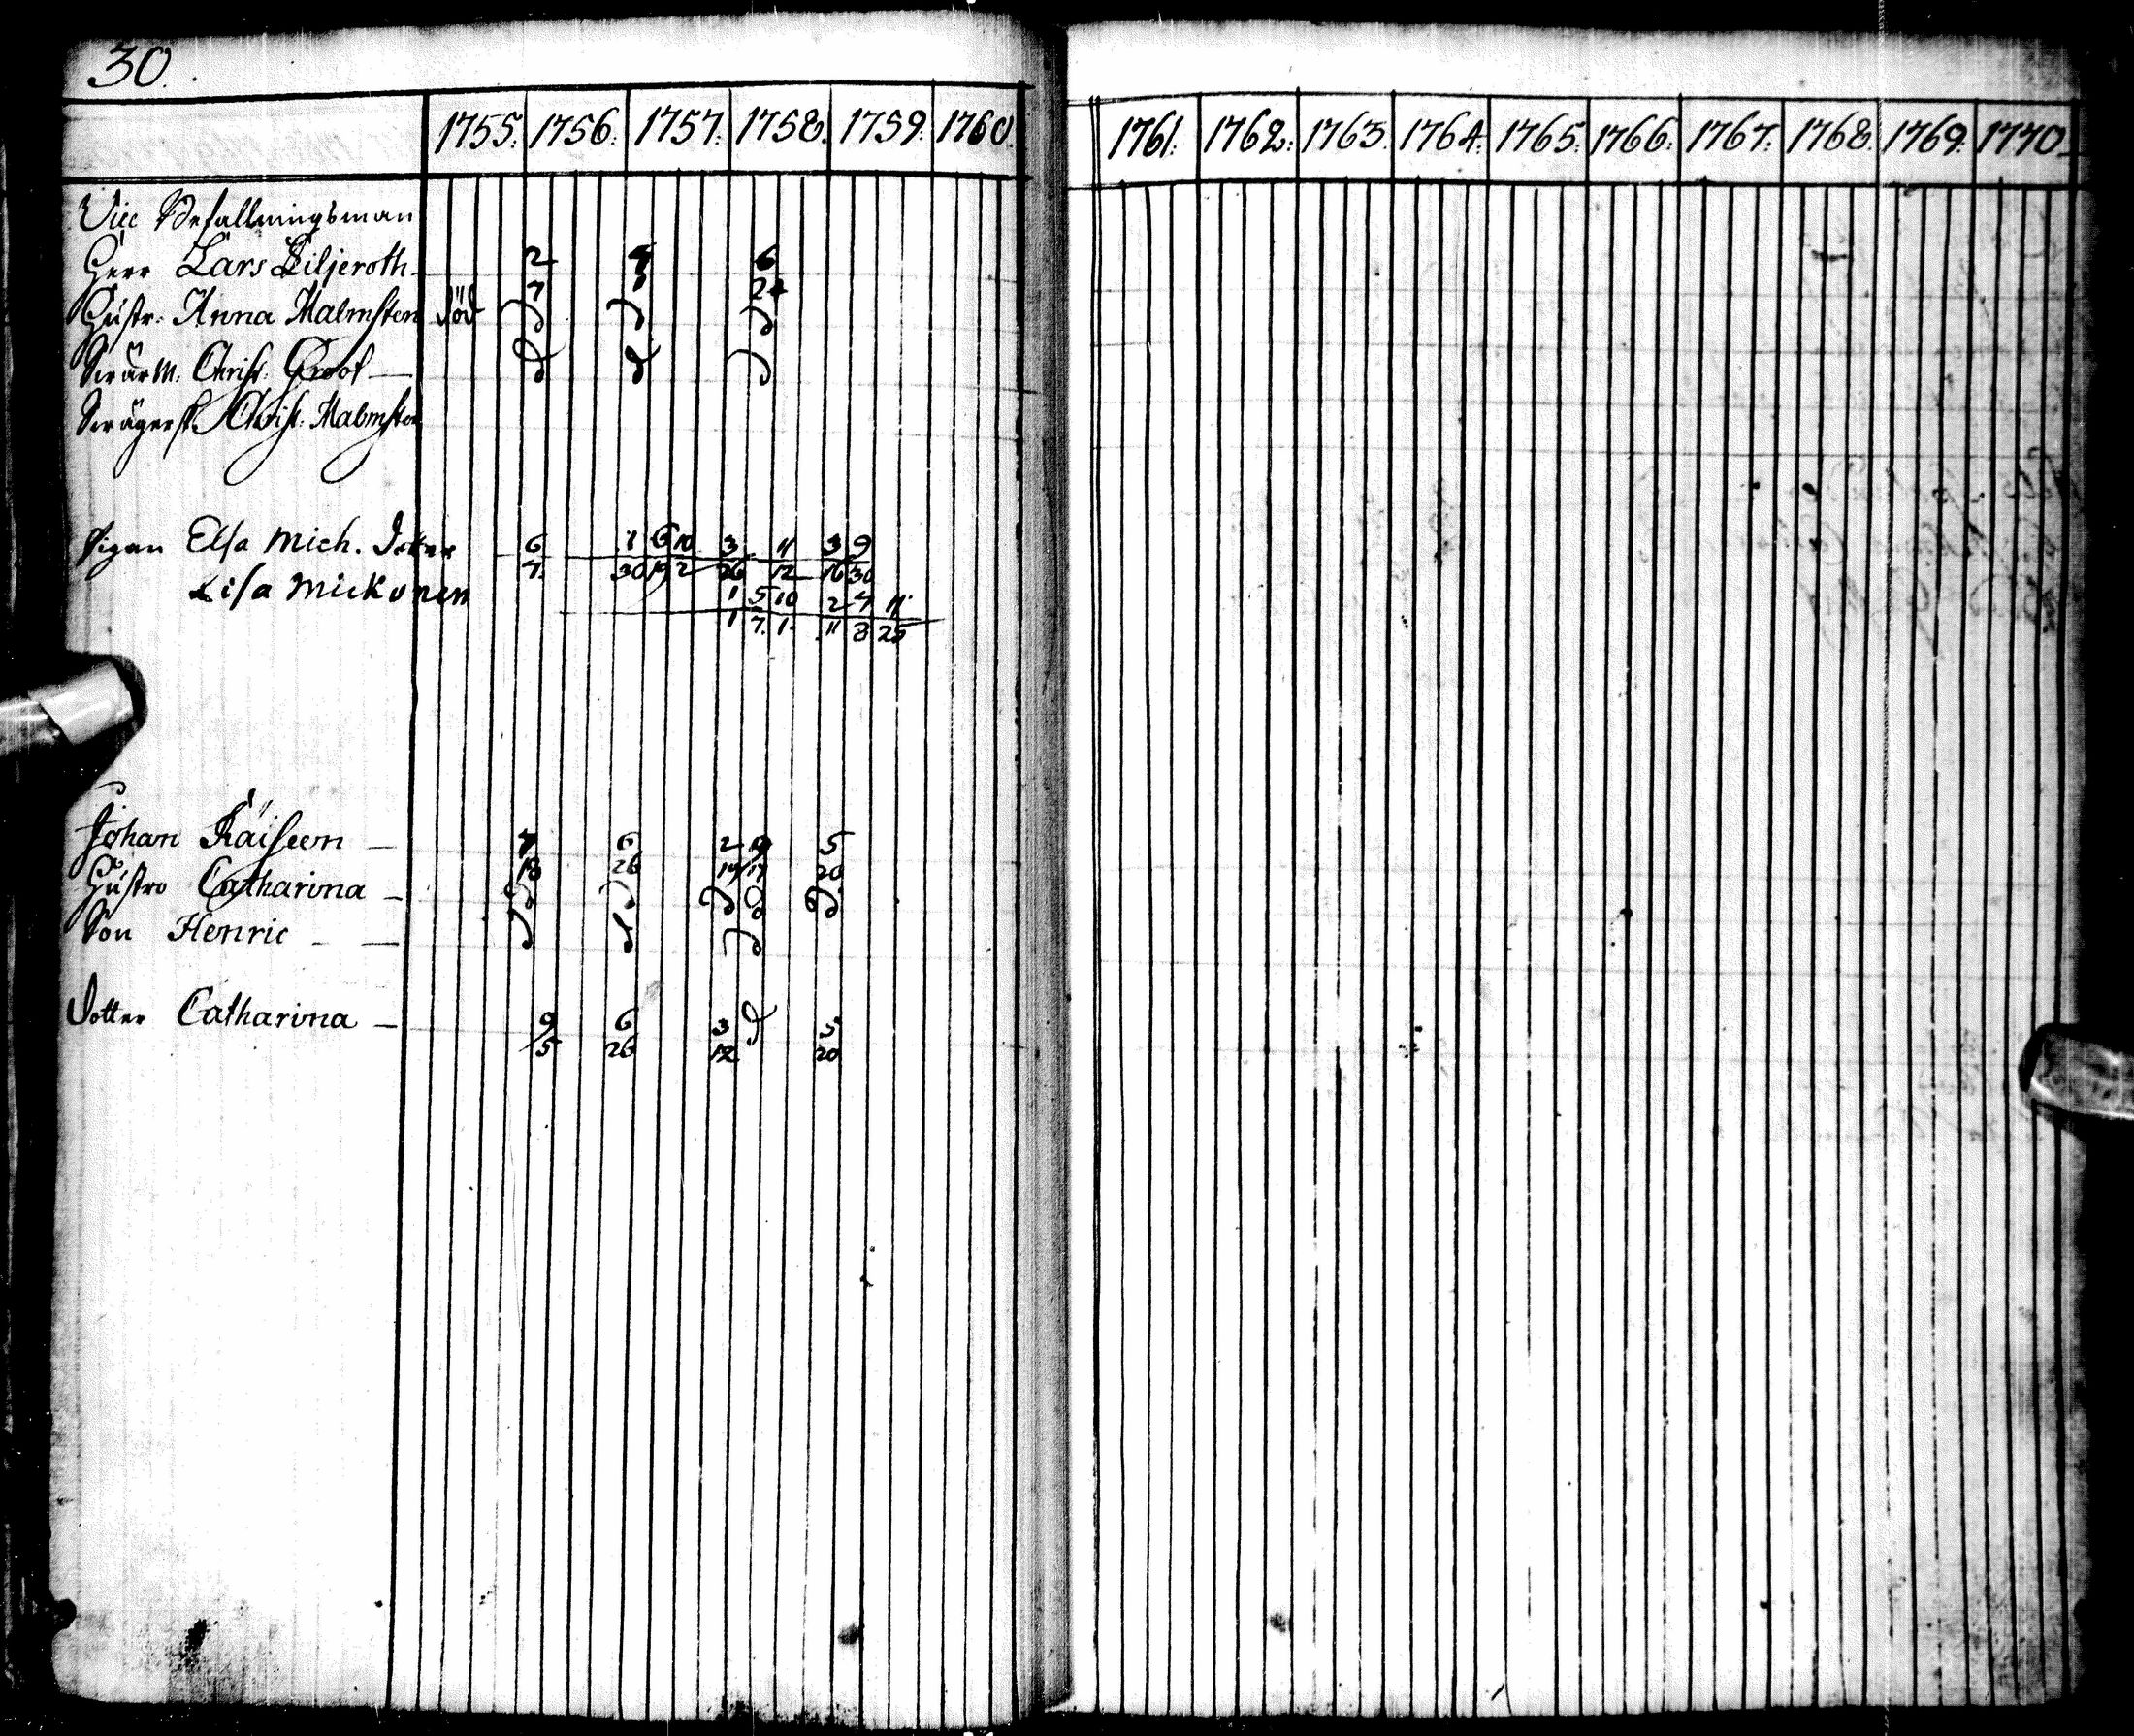 30.
1755. 1756. 1757. 1758. 1759. 1760. 1761. 1762. 1763. 1764. 1765. 1766. 1767. 1768. 1769. 1770
Vice Befallningsman
Herr Lars Liljeroth 2 6
7 24
Hustr: Anna Malmsten död
Swär M. Christ: Groot
Swägersk. Christ. Malmsten
Pigan Elsa Mich. Dotter 6 1 6 10 3 11 3 9
7. 30 19 2 26 12 16 30
Lisa Mickonen 1 5 10 2 7 11
1 7. 1. 11 8 25
Johan Räiseen 7 6 2 9 5
18 26 19 17 20
Hustro Catharina
Son Henric
Dotter Catharina 9 6 3 5
5 26 12 20